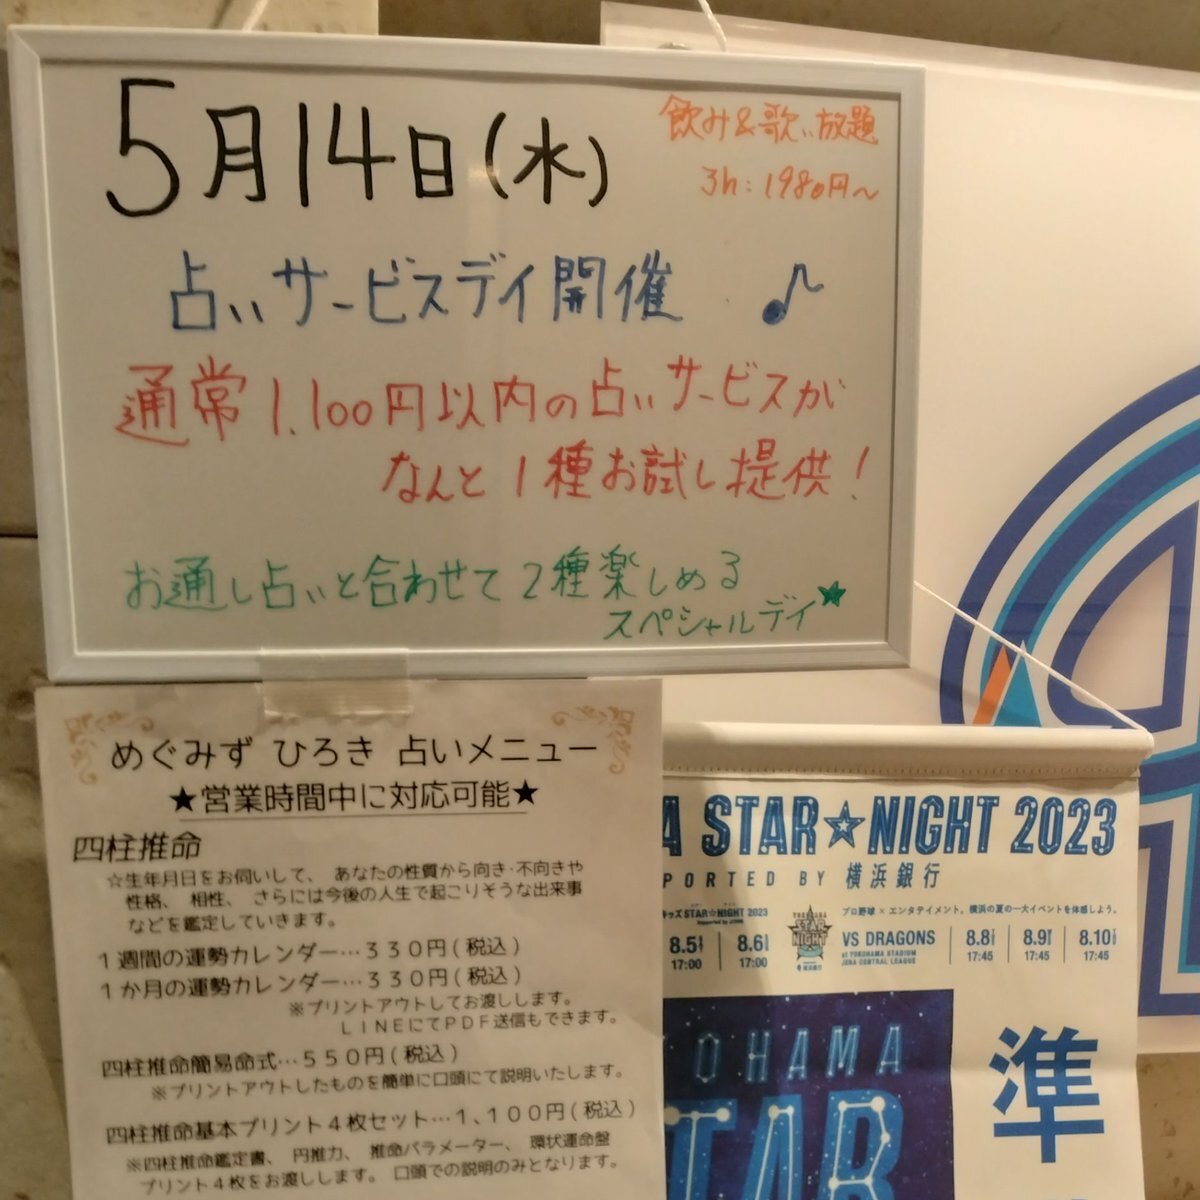 5月14日(水)
飲み&歌い放題
3h:1980円~
占いサービスデイ開催♪
通常1.100円以内の占いサービスが
なんと1種お試し提供!
お通し占いと合わせて2種楽しめる
スペシャルデイ★
めぐみず ひろき 占いメニュー
★営業時間中に対応可能★
四柱推命
☆生年月日をお伺いして、 あなたの性質から向き・不向きや
性格、 相性、 さらには今後の人生で起こりそうな出来事
などを鑑定していきます。
1週間の運勢カレンダー…330円(税込)
1か月の運勢カレンダー…330円(税込)
※プリントアウトしてお渡しします。
LINEにてPDF送信もできます。
四柱推命簡易命式…550円(税込)
※プリントアウトしたものを簡単に口頭にて説明いたします。
四柱推命基本プリント4枚セット…1,100円(税込)
※四柱推命鑑定書、 円推力、 推命パラメーター、 環状運命盤
プリント4枚をお渡しします。 口頭での説明のみとなります。
A STAR☆NIGHT 2023
PORTED BY 横浜銀行
キッズSTAR☆NIGHT 2023
8.5土 17:00
8.6日 17:00
YOKOHAMA STAR NIGHT
プロ野球×エンタテイメント。横浜の夏の一大イベントを体感しよう。
VS DRAGONS
at YOKOHAMA STADIUM
JERA CENTRAL LEAGUE
8.8火 17:45
8.9水 17:45
8.10木 17:45
OHAMA
TAR
準